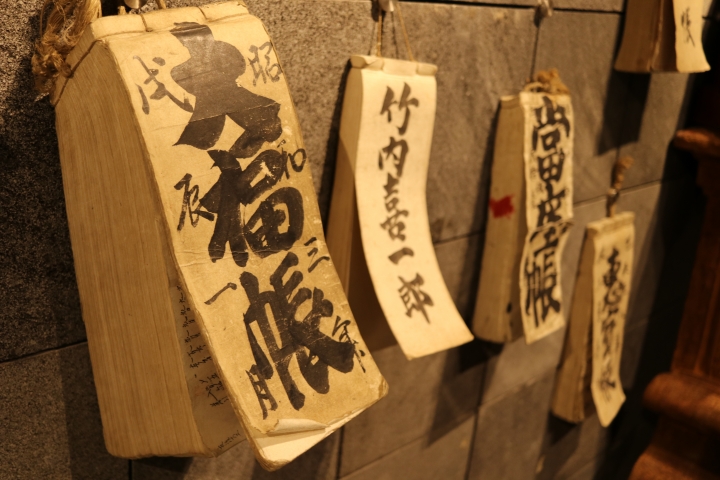 昭和三年
大福帳
戊辰一月
竹内喜一郎
當座帳